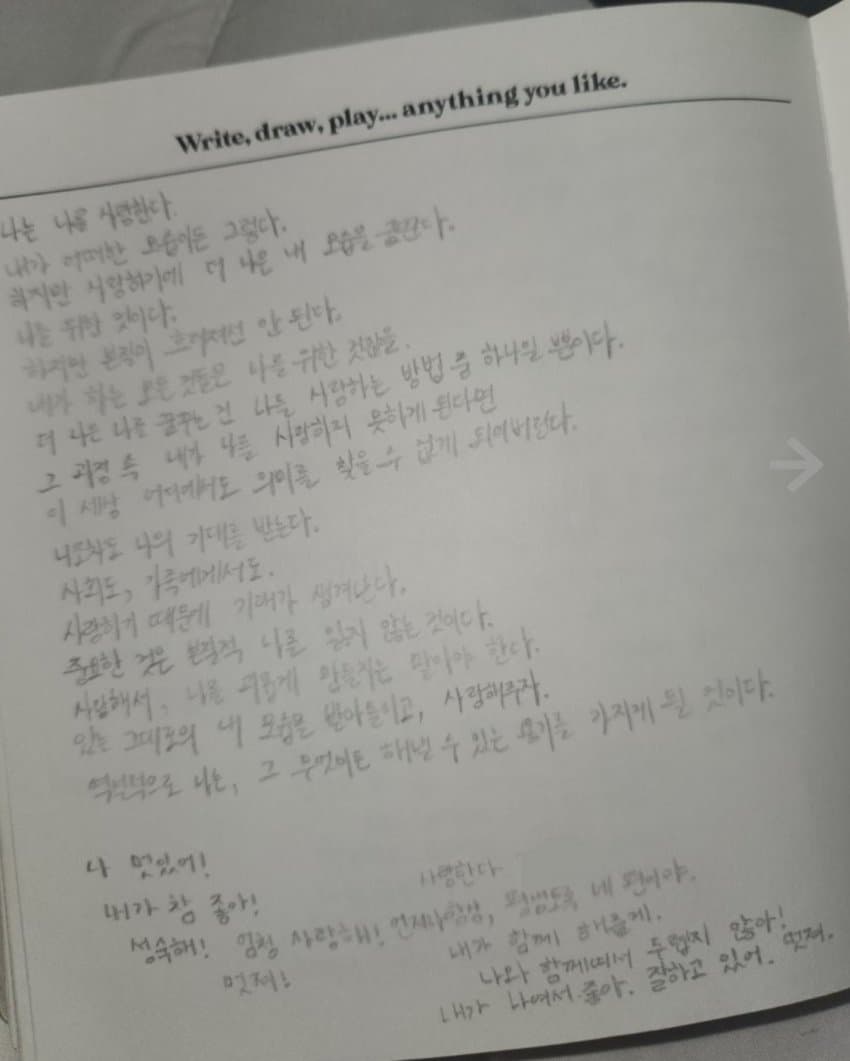 Write, draw, play... anything you like.
나는 나를 사랑한다.
내가 어떠한 모습이든 그렇다.
하지만 사랑하기에 더 나은 내 모습을 꿈꾼다.
나를 위한 것이다.
하지만 본질이 흐려져선 안 된다.
내가 하는 모든 것들은 나를 위한 것임을.
더 나은 나를 꿈꾸는 건 나를 사랑하는 방법 중 하나일 뿐이다.
그 과정 속 내가 나를 사랑하지 못하게 된다면
이 세상 어디에서도 의미를 찾을 수 없게 되어버린다.
나조차도 나의 기대를 받는다.
사회도, 가족에게서도.
사랑하기 때문에 기대가 생겨난다.
중요한 것은 본질적 나를 잃지 않는 것이다.
사랑해서, 나를 괴롭게 만들지는 말아야 한다.
있는 그대로의 내 모습을 받아들이고, 사랑해주자.
역설적으로 나는, 그 무엇이든 해낼 수 있는 용기를 가지게 될 것이다.
나 멋있어!
내가 참 좋아!
성숙해! 엄청 사랑해!
멋져!
사랑한다
언제나 항상, 평생토록 네 편이야.
내가 함께 해줄게.
나와 함께여서 두렵지 않아!
내가 나여서 좋아. 잘하고 있어. 멋져.